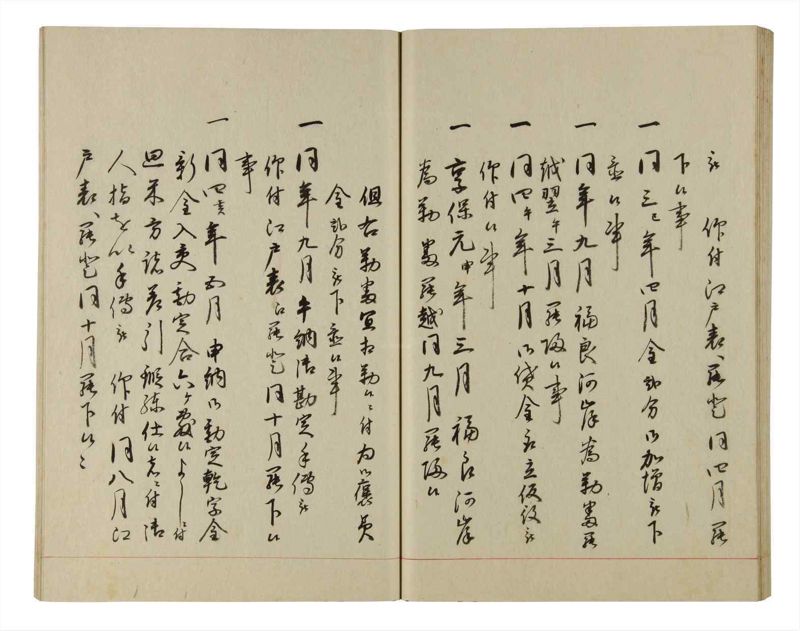 被 仰付江戸表罷登同四月罷
下候事
一同三巳年四月金 分御加増被下
置候事
一同年九月福良河岸為勤番罷
越翌午三月罷帰候事
一同四午年十月御貸金取立役被
仰付候事
一享保元申年三月福良河岸
為勤番罷越同九月罷帰候
但右勤番宜相勤候ニ付為御褒美
金 分被下置候事
一同年九月午納御勘定手伝被
仰付江戸表江罷登同十月罷下候
事
一同四亥年正月申納御勘定乾字金
新金入交勘定合六ケ敷候よしニ付
思案方諸差引 仕候 ニ付御
人指を以手伝被 仰付同八月江
戸表江罷登同十月罷下候